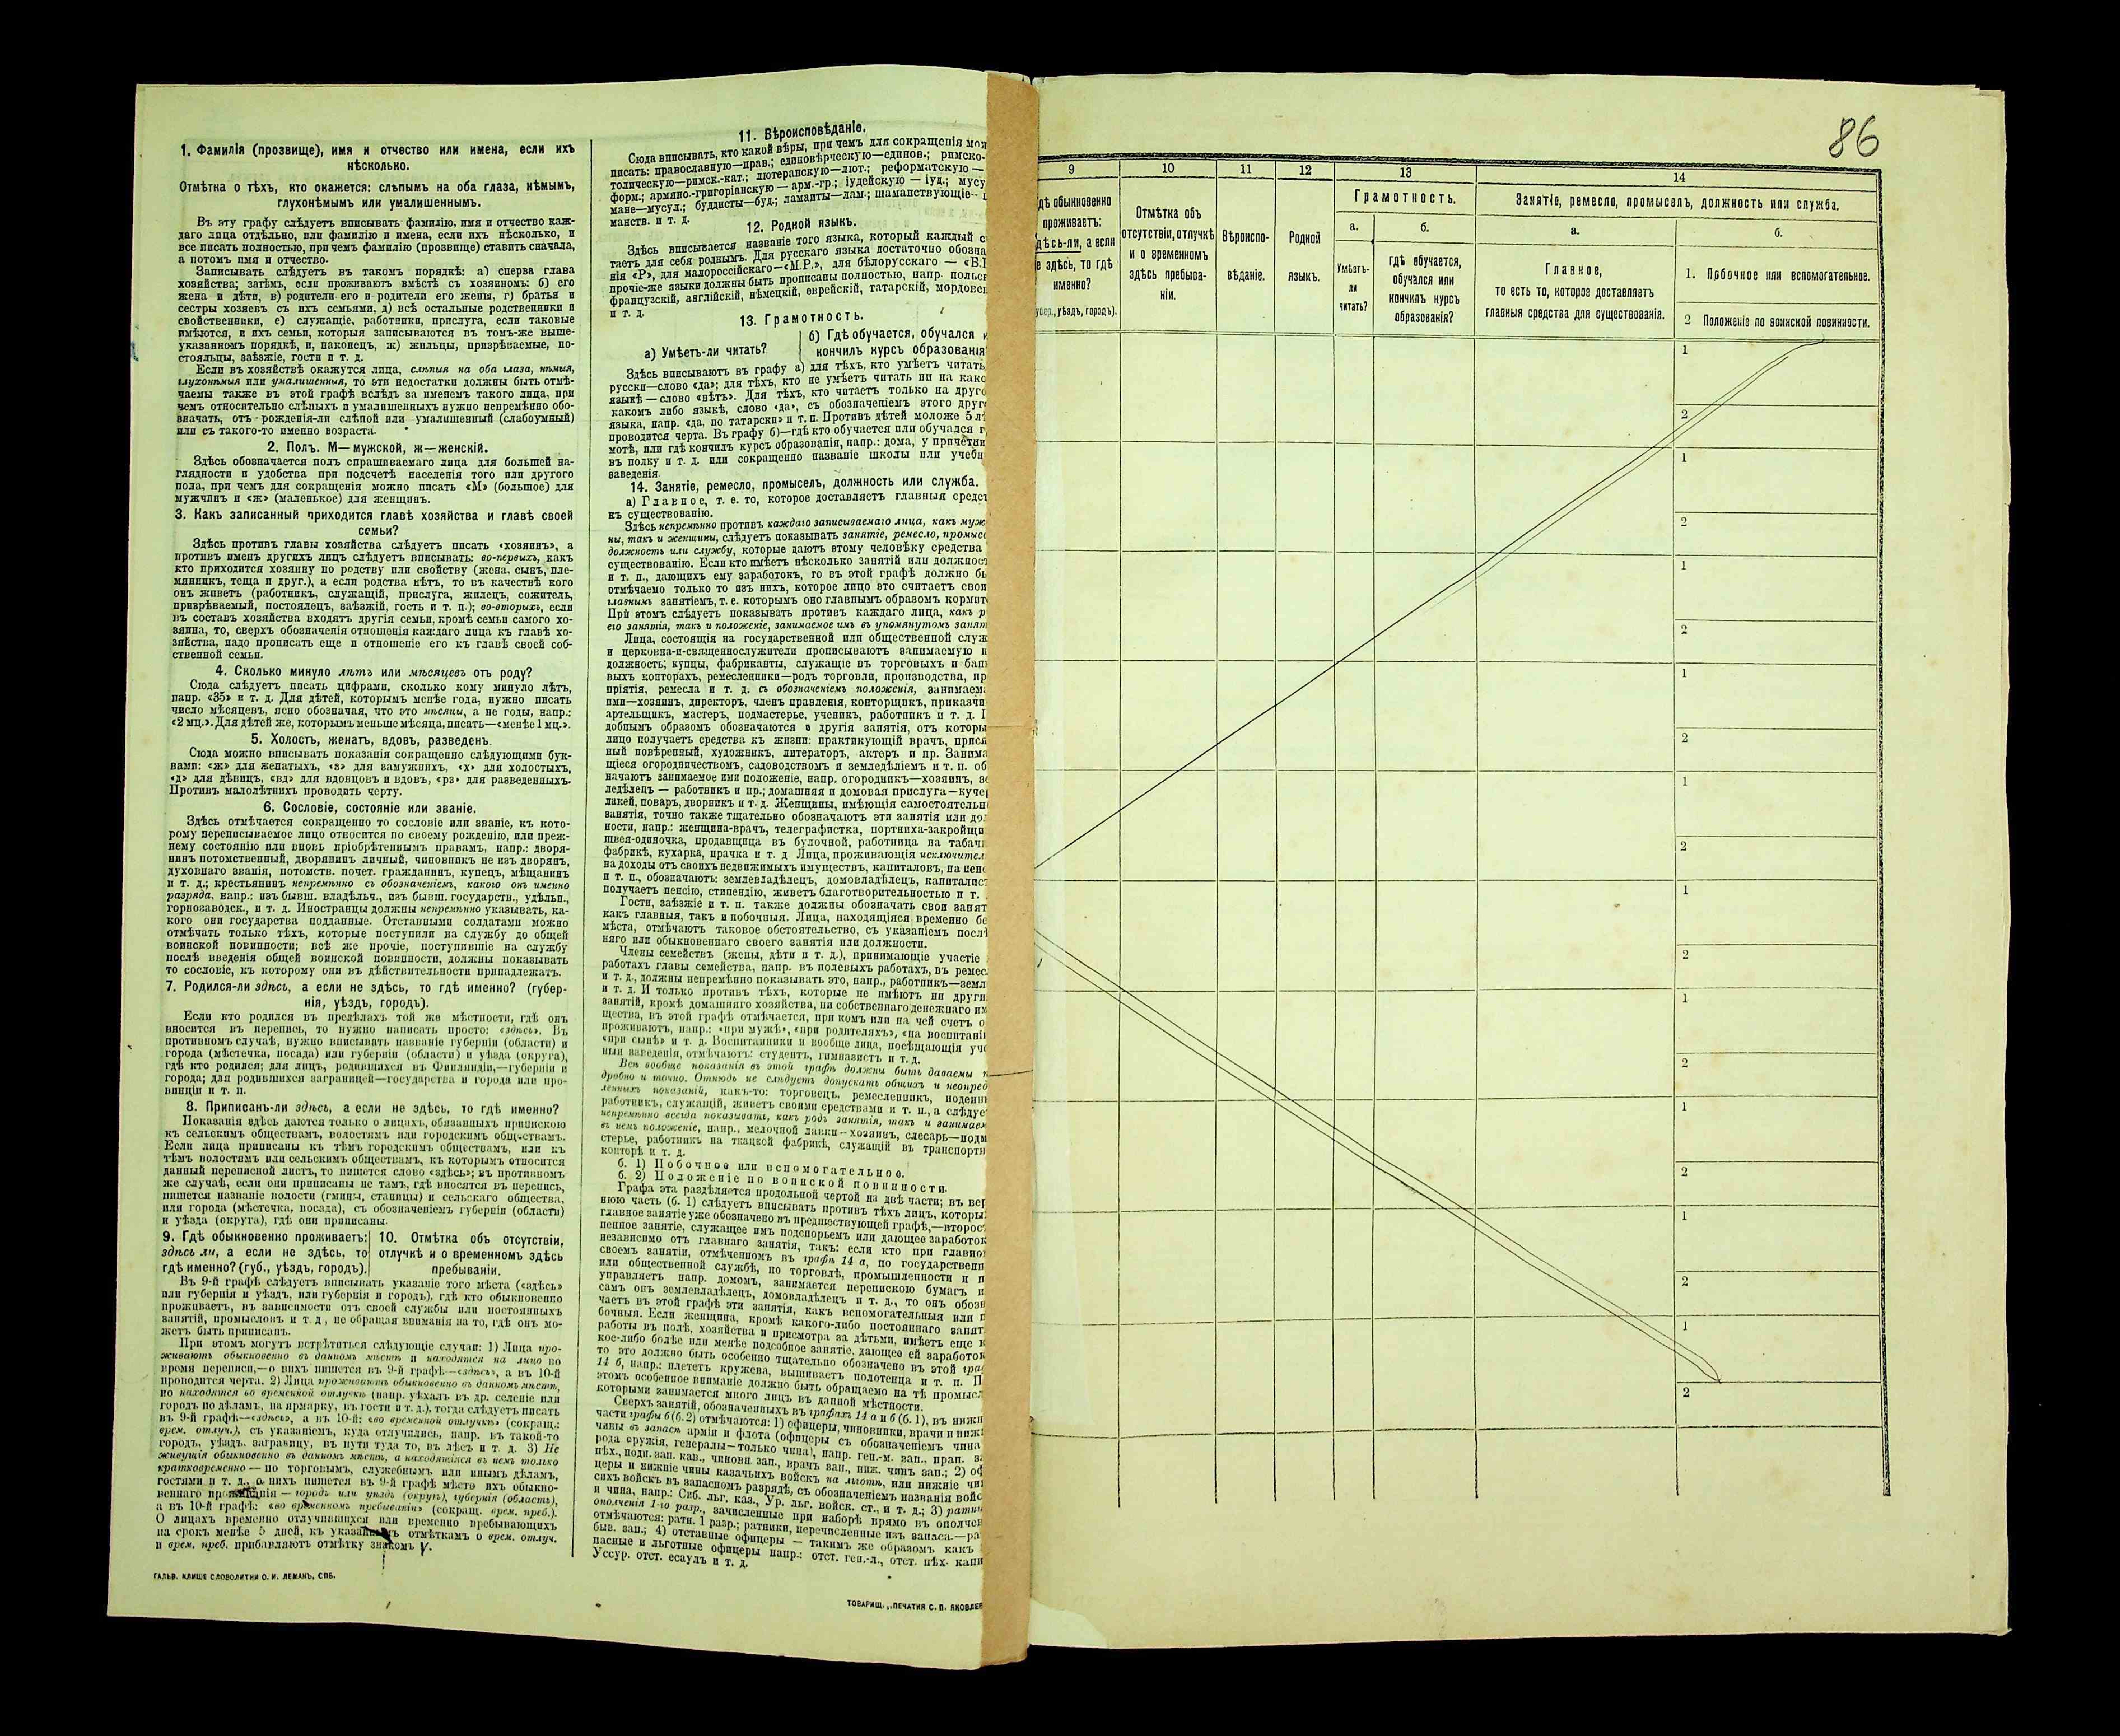 1. Фамилія (прозвище), имя и отчество или имена, если ихъ
нѣсколько.
Отмѣтка о тѣхъ, кто окажется: слѣпымъ на оба глаза, нѣмымъ,
глухонѣмымъ или умалишеннымъ.
Въ эту графу слѣдуетъ вписывать фамилію, имя и отчество каж-
даго лица отдѣльно, или фамилію и имена, если ихъ нѣсколько, и
все писать полностью, при чемъ фамилію (прозвище) ставить сначала,
а потомъ имя и отчество.
Записывать слѣдуетъ въ такомъ порядкѣ: а) сперва глава
хозяйства; затѣмъ, если проживаютъ вмѣстѣ съ хозяиномъ: б) его
жена и дѣти, в) родители его и родители его жены, г) братья и
сестры хозяевъ съ ихъ семьями, д) всѣ остальные родственники и
свойственники, е) служащіе, работники, прислуга, если таковые
имѣются, и ихъ семьи, которыя записываются въ томъ-же выше-
указанномъ порядкѣ, и, наконецъ, ж) жильцы, призрѣваемые, по-
стояльцы, заѣзжіе, гости и т. д.
Если въ хозяйствѣ окажутся лица, слѣпыя на оба глаза, нѣмыя,
глухонѣмыя или умалишенныя, то эти недостатки должны быть отмѣ-
чаемы также въ этой графѣ вслѣдъ за именемъ такого лица, при
чемъ относительно слѣпыхъ и умалишенныхъ нужно непремѣнно обо-
значать, отъ рожденія-ли слѣпой или умалишенный (слабоумный)
или съ такого-то именно возраста.
2. Полъ. М—мужской, ж—женскій.
Здѣсь обозначается полъ спрашиваемаго лица для большей на-
глядности и удобства при подсчетѣ населенія того или другого
пола, при чемъ для сокращенія можно писать «М» (большое) для
мужчинъ и «ж» (маленькое) для женщинъ.
3. Какъ записанный приходится главѣ хозяйства и главѣ своей
семьи?
Здѣсь противъ главы хозяйства слѣдуетъ писать «хозяинъ», а
противъ именъ другихъ лицъ слѣдуетъ вписывать: во-первыхъ, какъ
кто приходится хозяину по родству или свойству (жена, сынъ, пле-
мянникъ, теща и друг.), а если родства нѣтъ, то въ качествѣ кого
онъ живетъ (работникъ, служащій, прислуга, жилецъ, сожитель,
призрѣваемый, постоялецъ, заѣзжій, гость и т. п.); во-вторыхъ, если
въ составъ хозяйства входятъ другія семьи, кромѣ семьи самого хо-
зяина, то, сверхъ обозначенія отношенія каждаго лица къ главѣ хо-
зяйства, надо прописать еще и отношеніе его къ главѣ своей соб-
ственной семьи.
4. Сколько минуло лѣтъ или мѣсяцевъ отъ роду?
Сюда слѣдуетъ писать цифрами, сколько кому минуло лѣтъ,
напр. «35» и т. д. Для дѣтей, которымъ менѣе года, нужно писать
число мѣсяцевъ, ясно обозначая, что это мѣсяцы, а не годы, напр.:
«2 мц.». Для дѣтей же, которымъ меньше мѣсяца, писать—«менѣе 1 мц.».
5. Холостъ, женатъ, вдовъ, разведенъ.
Сюда можно вписывать показанія сокращенно слѣдующими бук-
вами: «ж» для женатыхъ, «з» для замужнихъ, «х» для холостыхъ,
«д» для дѣвицъ, «вд» для вдовцовъ и вдовъ, «рз» для разведенныхъ.
Противъ малолѣтнихъ проводить черту.
6. Сословіе, состояніе или званіе.
Здѣсь отмѣчается сокращенно то сословіе или званіе, къ кото-
рому переписываемое лицо относится по своему рожденію, или преж-
нему состоянію или вновь пріобрѣтеннымъ правамъ, напр.: дворя-
нинъ потомственный, дворянинъ личный, чиновникъ не изъ дворянъ,
духовнаго званія, потомств. почет. гражданинъ, купецъ, мѣщанинъ
и т. д.; крестьянинъ непремѣнно съ обозначеніемъ, какого онъ именно
разряда, напр.: изъ бывш. владѣльч., изъ бывш. государств., удѣльн.,
горнозаводск., и т. д. Иностранцы должны непремѣнно указывать, ка-
кого они государства подданные. Отставными солдатами можно
отмѣчать только тѣхъ, которые поступили на службу до общей
воинской повинности; всѣ же прочіе, поступившіе на службу
послѣ введенія общей воинской повинности, должны показывать
то сословіе, къ которому они въ дѣйствительности принадлежатъ.
7. Родился-ли здѣсь, а если не здѣсь, то гдѣ именно? (губер-
нія, уѣздъ, городъ).
Если кто родился въ предѣлахъ той же мѣстности, гдѣ онъ
вносится въ перепись, то нужно написать просто: «здѣсь». Въ
противномъ случаѣ, нужно вписывать названіе губерніи (области) и
города (мѣстечка, посада) или губерніи (области) и уѣзда (округа),
гдѣ кто родился; для лицъ, родившихся въ Финляндіи,—губерніи и
города; для родившихся заграницей—государства и города или про-
винціи и т. п.
8. Приписанъ-ли здѣсь, а если не здѣсь, то гдѣ именно?
Показанія здѣсь даются только о лицахъ, обязанныхъ припискою
къ сельскимъ обществамъ, волостямъ или городскимъ обществамъ.
Если лица приписаны къ тѣмъ городскимъ обществамъ, или къ
тѣмъ волостямъ или сельскимъ обществамъ, къ которымъ относится
данный переписной листъ, то пишется слово «здѣсь»; въ противномъ
же случаѣ, если они приписаны не тамъ, гдѣ вносятся въ перепись,
пишется названіе волости (гмины, станицы) и сельскаго общества,
или города (мѣстечка, посада), съ обозначеніемъ губерніи (области)
и уѣзда (округа), гдѣ они приписаны.
9. Гдѣ обыкновенно проживаетъ:
здѣсь ли, а если не здѣсь, то
гдѣ именно? (губ., уѣздъ, городъ).
10. Отмѣтка объ отсутствіи,
отлучкѣ и о временномъ здѣсь
пребываніи.
Въ 9-й графѣ слѣдуетъ вписывать указаніе того мѣста («здѣсь»
или губернія и уѣздъ, или губернія и городъ), гдѣ кто обыкновенно
проживаетъ, въ зависимости отъ своей службы или постоянныхъ
занятій, промысловъ и т. д., не обращая вниманія на то, гдѣ онъ мо-
жетъ быть приписанъ.
При этомъ могутъ встрѣтиться слѣдующіе случаи: 1) Лица про-
живаютъ обыкновенно въ данномъ мѣстѣ и находятся на лицо во
время переписи,—о нихъ пишется въ 9-й графѣ—«здѣсь», а въ 10-й
проводится черта. 2) Лица проживаютъ обыкновенно въ данномъ мѣстѣ,
но находятся во временной отлучкѣ (напр. уѣхалъ въ др. селеніе или
городъ по дѣламъ, на ярмарку, въ гости и т. д.), тогда слѣдуетъ писать
въ 9-й графѣ—«здѣсь», а въ 10-й: «во временной отлучкѣ» (сокращ.:
врем. отлуч.), съ указаніемъ, куда отлучились, напр. въ такой-то
городъ, уѣздъ, заграницу, въ пути туда то, въ лѣсъ и т. д. 3) Не
живущія обыкновенно въ данномъ мѣстѣ, а находящіяся въ немъ только
кратковременно — по торговымъ, служебнымъ или инымъ дѣламъ,
гостями и т. д., а нихъ пишется въ 9-й графѣ мѣсто ихъ обыкно-
веннаго — городъ или уѣздъ (округъ), губернія (область),
а въ 10-й графѣ: «во временномъ пребываніи» (сокращ. врем. преб.).
О лицахъ временно отлучившихся или временно пребывающихъ
на срокъ менѣе 5 дней, къ отмѣткамъ о врем. отлуч.
и врем. преб. прибавляютъ отмѣтку знакомъ V.
ГАЛЬВ. КЛИШЕ СЛОВОЛИТНИ О. И. ЛЕМАНЪ, СПБ.
11. Вѣроисповѣданіе.
Сюда вписывать, кто какой вѣры, при чемъ для сокращенія мож
писать: православную—прав.; единовѣрческую—единов.; римско-
толическую—римск.-кат.; лютеранскую—лют.; реформатскую—
форм.; армяно-григоріанскую — арм.-гр.; іудейскую — іуд.; мусу
мане—мусул.; буддисты—буд.; ламаиты—лам.; шаманствующіе—
манств. и т. д.
12. Родной языкъ.
Здѣсь вписывается названіе того языка, который каждый с
таетъ для себя роднымъ. Для русскаго языка достаточно обозна
нія «Р», для малороссійскаго—«М.Р.», для бѣлорусскаго — «Б.
прочіе-же языки должны быть прописаны полностью, напр. польск
французскій, англійскій, нѣмецкій, еврейскій, татарскій, мордовск
и т. д.
13. Грамотность.
а) Умѣетъ-ли читать?
б) Гдѣ обучается, обучался и
кончилъ курсъ образованія
Здѣсь вписываютъ въ графу а) для тѣхъ, кто умѣетъ читать
русски—слово «да»; для тѣхъ, кто не умѣетъ читать ни на како
языкѣ—слово «нѣтъ». Для тѣхъ, кто читаетъ только на друго
какомъ либо языкѣ, слово «да», съ обозначеніемъ этого друго
языка, напр. «да, по татарски» и т. п. Противъ дѣтей моложе 5 лѣ
проводится черта. Въ графу б)—гдѣ кто обучается или обучался г
мотѣ, или гдѣ кончилъ курсъ образованія, напр.: дома, у причетни
въ полку и т. д. или сокращенно названіе школы или учебн
заведенія.
14. Занятіе, ремесло, промыселъ, должность или служба.
а) Главное, т. е. то, которое доставляетъ главныя средст
къ существованію.
Здѣсь непремѣнно противъ каждаго записываемаго лица, какъ муж
ны, такъ и женщины, слѣдуетъ показывать занятіе, ремесло, промысе
должность или службу, которые даютъ этому человѣку средства
существованію. Если кто имѣетъ нѣсколько занятій или должност
и т. п., дающихъ ему заработокъ, то въ этой графѣ должно бы
отмѣчаемо только то изъ нихъ, которое лицо это считаетъ свои
главнымъ занятіемъ, т. е. которымъ оно главнымъ образомъ кормитс
При этомъ слѣдуетъ показывать противъ каждаго лица, какъ р
его занятія, такъ и положеніе, занимаемое имъ въ упомянутомъ занят
Лица, состоящія на государственной или общественной служ
и церковно-и-священнослужители прописываютъ занимаемую и
должность; купцы, фабриканты, служащіе въ торговыхъ и бан
выхъ конторахъ, ремесленники—родъ торговли, производства, пр
пріятія, ремесла и т. д. съ обозначеніемъ положенія, занимаема
ими—хозяинъ, директоръ, членъ правленія, конторщикъ, приказчи
артельщикъ, мастеръ, подмастерье, ученикъ, работникъ и т. д. П
добнымъ образомъ обозначаются и другія занятія, отъ которы
лицо получаетъ средства къ жизни: практикующій врачъ, прися
ный повѣренный, художникъ, литераторъ, актеръ и пр. Занима
щіеся огородничествомъ, садоводствомъ и земледѣліемъ и т. п. об
начаютъ занимаемое ими положеніе, напр. огородникъ—хозяинъ, зе
ледѣлецъ — работникъ и пр.; домашняя и домовая прислуга—куче
лакей, поваръ, дворникъ и т. д. Женщины, имѣющія самостоятельн
занятія, точно также тщательно обозначаютъ эти занятія или дол
ности, напр.: женщина-врачъ, телеграфистка, портниха-закройщи
швея-одиночка, продавщица въ булочной, работница на табачн
фабрикѣ, кухарка, прачка и т. д. Лица, проживающія исключител
на доходы отъ своихъ недвижимыхъ имуществъ, капиталовъ, на пен
и т. п., обозначаютъ: землевладѣлецъ, домовладѣлецъ, капиталист
получаетъ пенсію, стипендію, живетъ благотворительностью и т.
Гости, заѣзжіе и т. п. также должны обозначать свои занят
какъ главныя, такъ и побочныя. Лица, находящіяся временно бе
мѣста, отмѣчаютъ таковое обстоятельство, съ указаніемъ послѣ
няго или обыкновеннаго своего занятія или должности.
Члены семействъ (жены, дѣти и т. д.), принимающіе участіе
работахъ главы семейства, напр. въ полевыхъ работахъ, въ ремес
и т. д., должны непремѣнно показывать это, напр., работникъ—земл
и т. д. И только противъ тѣхъ, которые не имѣютъ ни други
занятій, кромѣ домашняго хозяйства, ни собственнаго денежнаго им
щества, въ этой графѣ отмѣчается, при комъ или на чей счетъ о
проживаютъ, напр.: «при мужѣ», «при родителяхъ», «на воспитані
«при сынѣ» и т. д. Воспитанники и вообще лица, посѣщающія уче
ныя заведенія, отмѣчаютъ: студентъ, гимназистъ и т. д.
Всѣ вообще показанія въ этой графѣ должны быть даваемы п
дробно и точно. Отнюдь не слѣдуетъ допускать общихъ и неопред
ленныхъ показаній, какъ-то: торговецъ, ремесленникъ, поденщ
работникъ, служащій, живетъ своими средствами и т. п., а слѣдуе
непремѣнно всегда показывать, какъ родъ занятія, такъ и занимаем
въ немъ положеніе, напр., мелочной лавки—хозяинъ, слесарь—подм
стерье, работникъ на ткацкой фабрикѣ, служащій въ транспортн
конторѣ и т. д.
б. 1) Побочное или вспомогательное.
б. 2) Положеніе по воинской повинности.
Графа эта раздѣляется продольной чертой на двѣ части; въ вер
нюю часть (б. 1) слѣдуетъ вписывать противъ тѣхъ лицъ, которы
главное занятіе уже обозначено въ предшествующей графѣ,—второс
пенное занятіе, служащее имъ подспорьемъ или дающее заработок
независимо отъ главнаго занятія, такъ: если кто при главно
своемъ занятіи, отмѣченномъ въ графѣ 14 а, по государственн
или общественной службѣ, по торговлѣ, промышленности и п
управляетъ напр. домомъ, занимается перепискою бумагъ и
самъ онъ землевладѣлецъ, домовладѣлецъ и т. д., то онъ обозн
чаетъ въ этой графѣ эти занятія, какъ вспомогательныя или п
бочныя. Если женщина, кромѣ какого-либо постояннаго занят
работы въ полѣ, хозяйства и присмотра за дѣтьми, имѣетъ еще к
кое-либо болѣе или менѣе подсобное занятіе, дающее ей заработок
то это должно быть особенно тщательно обозначено въ этой гра
14 б, напр.: плететъ кружева, вышиваетъ полотенца и т. п. П
этомъ особенное вниманіе должно быть обращаемо на тѣ промысл
которыми занимается много лицъ въ данной мѣстности.
Сверхъ занятій, обозначенныхъ въ графахъ 14 а и б (б. 1), въ нижн
части графы б (б. 2) отмѣчаются: 1) офицеры, чиновники, врачи и нижн
чины въ запасѣ арміи и флота (офицеры съ обозначеніемъ чина
рода оружія, генералы—только чина), напр. ген.-м. зап., прап. з
пѣх., подп. зап. кав., чиновн. зап., врачъ зап., ниж. чинъ зап.; 2) оф
церы и нижніе чины казачьихъ войскъ на льготѣ, или нижніе чи
сихъ войскъ въ запасномъ разрядѣ, съ обозначеніемъ названія войс
и чина, напр.: Сиб. льг. каз., Ур. льг. войск. ст., и т. д.; 3) ратни
ополченія 1-го разр., зачисленные при наборѣ прямо въ ополчен
отмѣчаются: ратн. 1 разр.; ратники, перечисленные изъ запаса.—ра
быв. зап.; 4) отставные офицеры — такимъ же образомъ, какъ
пасные и льготные офицеры напр.: отст. ген.-л., отст. пѣх. капи
Уссур. отст. есаулъ и т. д.
ТОВАРИЩ. „ПЕЧАТНЯ С. П. ЯКОВЛЕВ
86
9
10
11
12
13
14
дѣ обыкновенно
проживаетъ:
дѣсь-ли, а если
е здѣсь, то гдѣ
именно?
губер., уѣздъ, городъ).
Отмѣтка объ
отсутствіи, отлучкѣ
и о временномъ
здѣсь пребыва-
ніи.
Вѣроиспо-
вѣданіе.
Родной
языкъ.
Грамотность.
а.
б.
Умѣетъ-
ли
читать?
гдѣ обучается,
обучался или
кончилъ курсъ
образованія?
Занятіе, ремесло, промыселъ, должность или служба.
а.
б.
Главное,
то есть то, которое доставляетъ
главныя средства для существованія.
1. Побочное или вспомогательное.
2 Положеніе по воинской повинности.
1
2
1
2
1
2
1
2
1
2
1
2
1
2
1
2
1
2
1
2